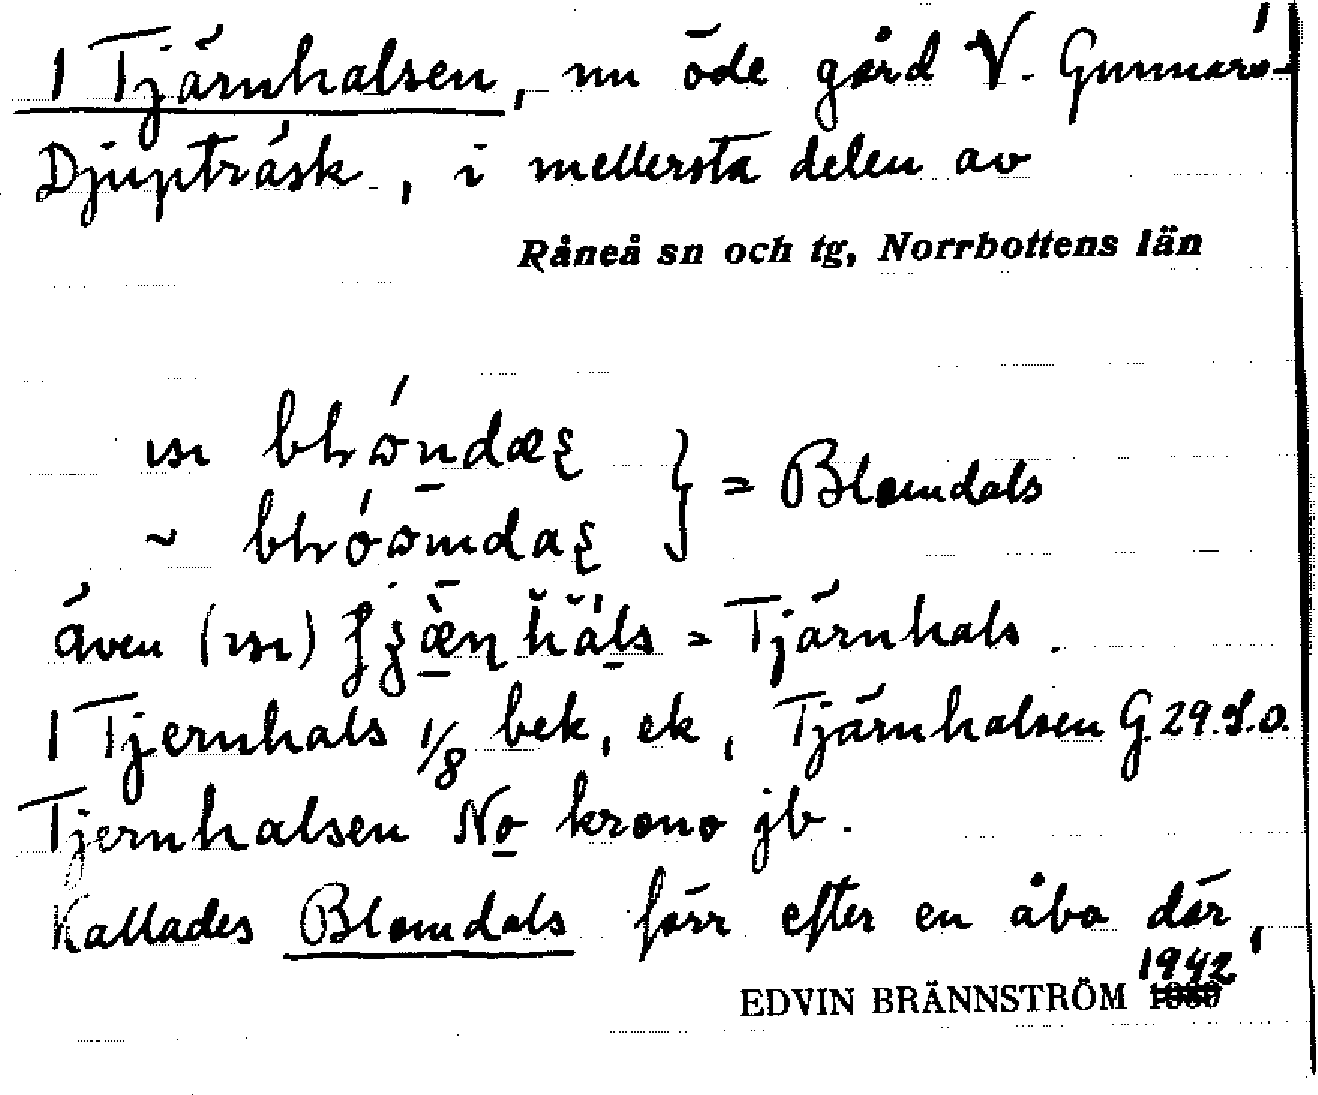 1 Tjärnhalsen, nu öde gård V. Gunnars-
Djupträsk, i mellersta delen av
Råneå sn och tg, Norrbottens län
= Blomdals
~
även = Tjärnhals.
1 Tjernhals 1/8 bek, ek, Tjärnhalsen G. 29.S.O.
Tjernhalsen No krono jb.
Kallades Blomdals förr efter en åbo där,
1942
EDVIN BRÄNNSTRÖM 1930